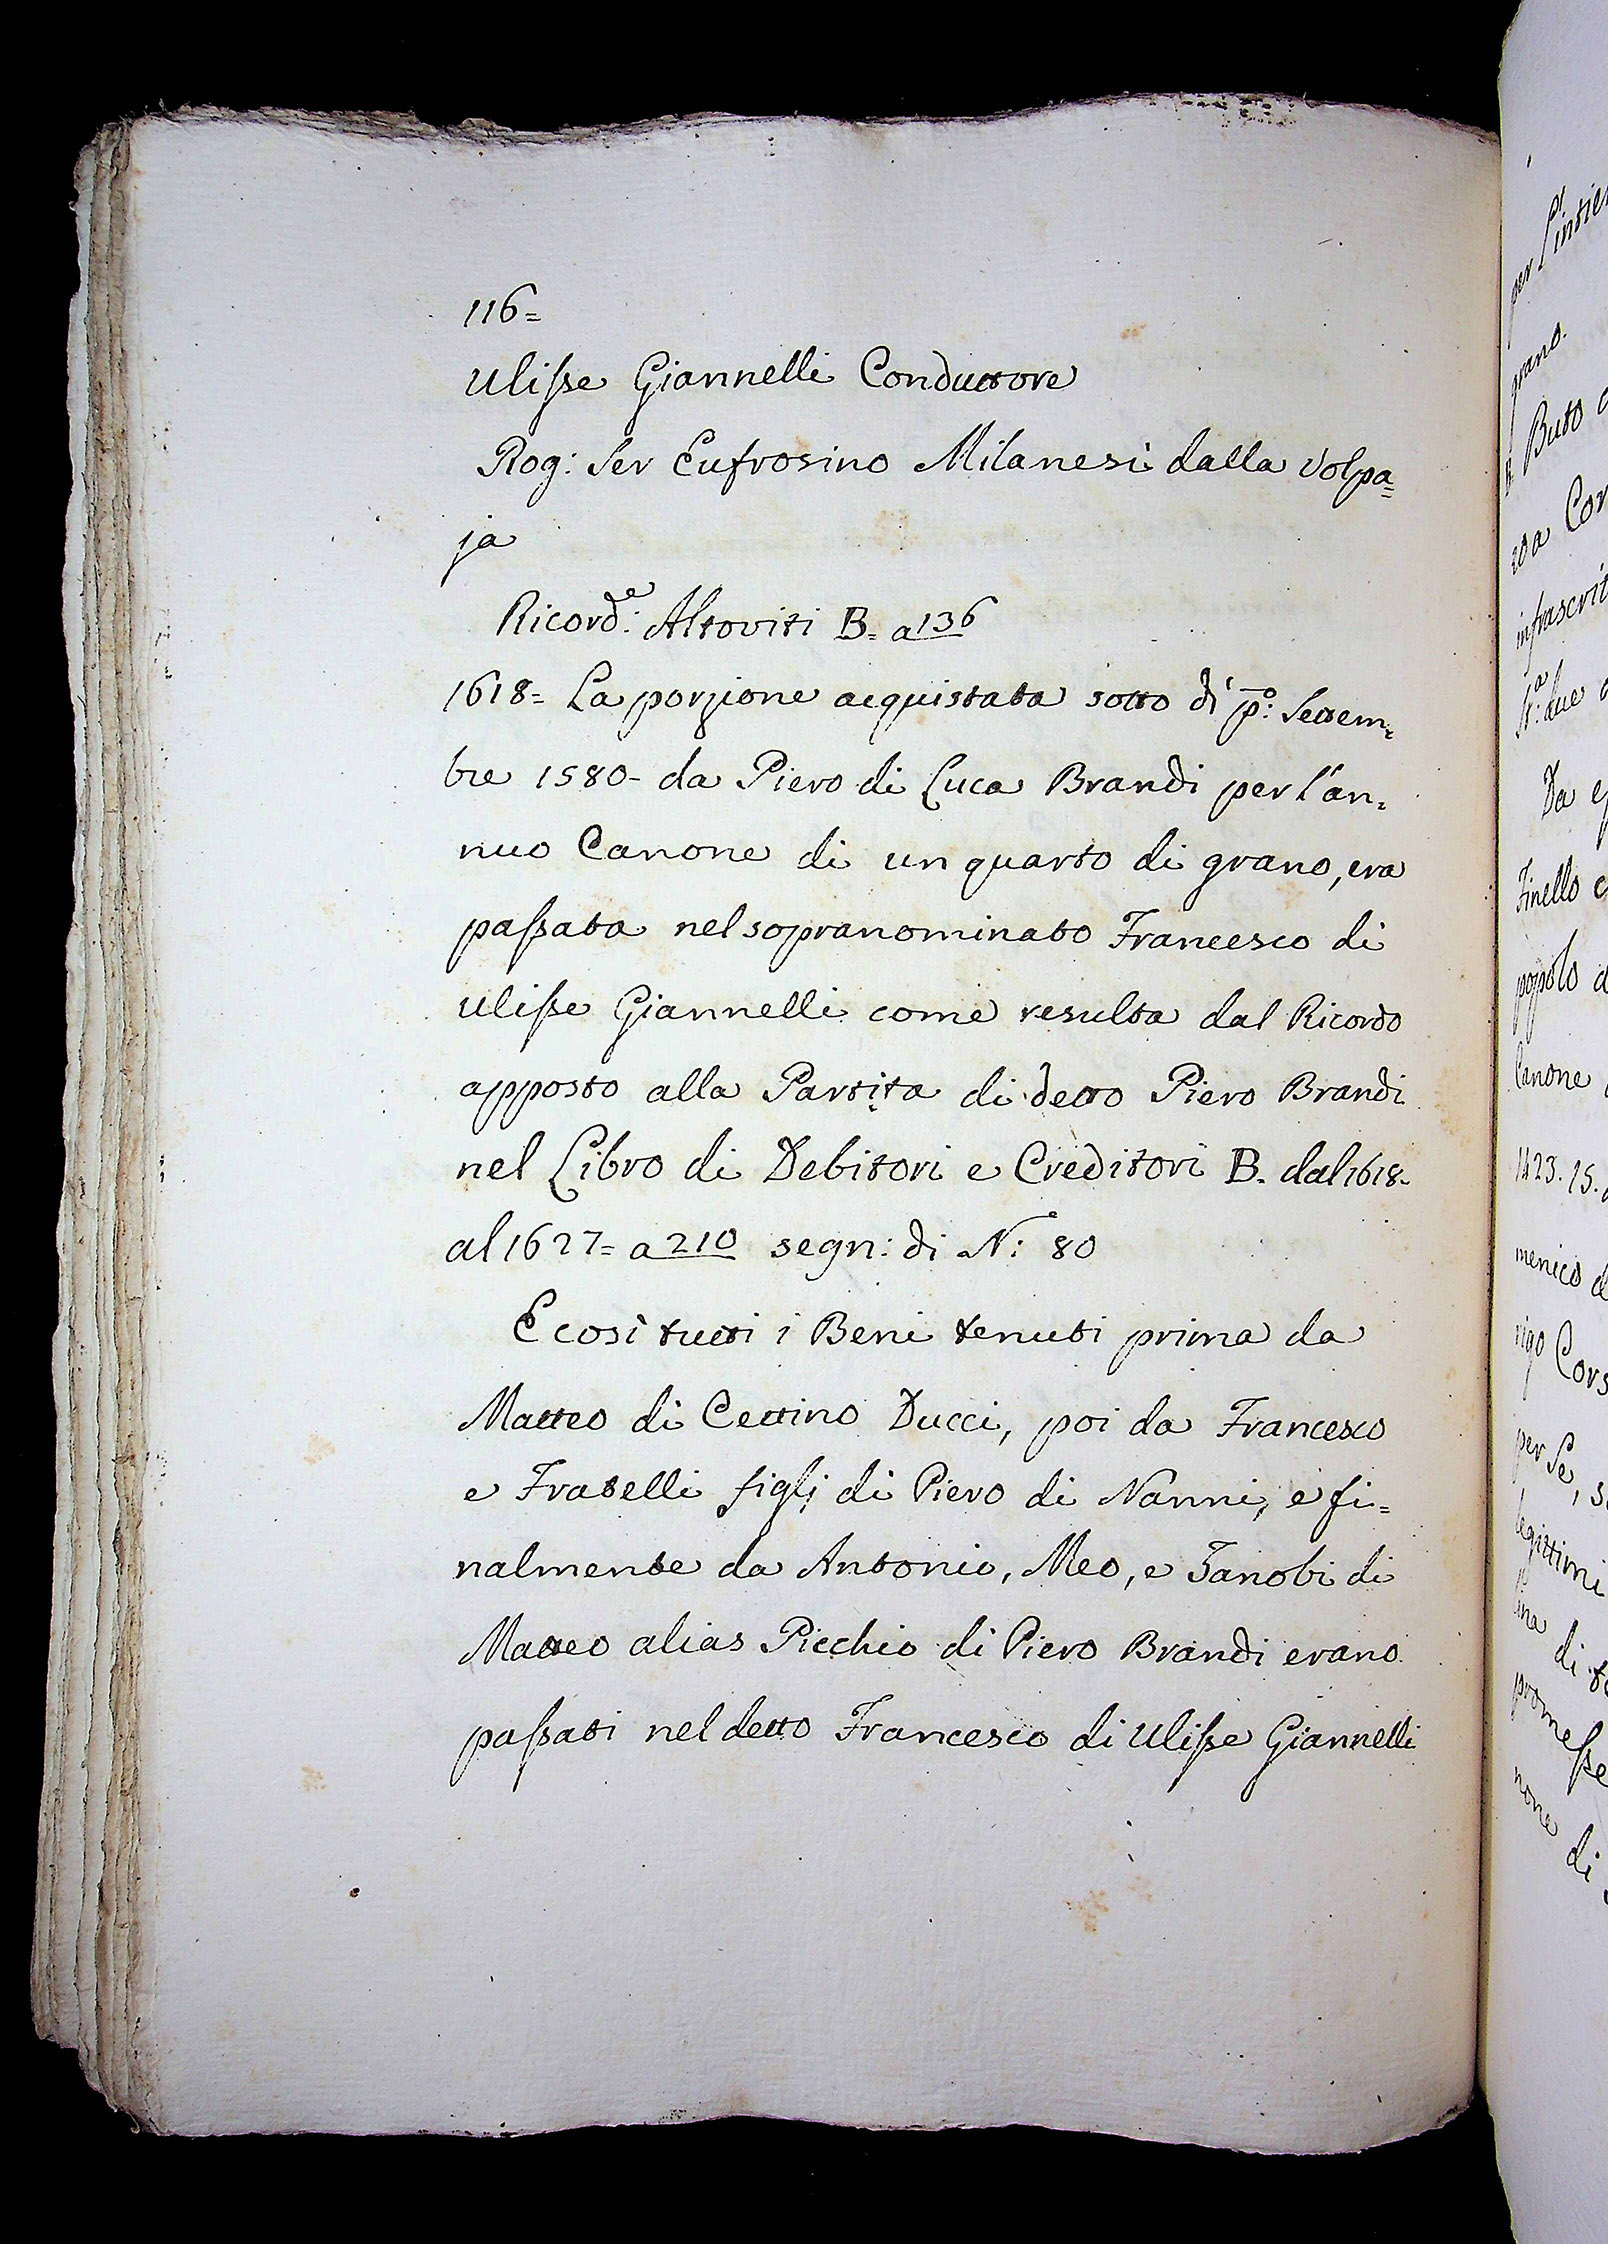 116=
Ulisse Giannelli Conduttore
Rog: Ser Eufrosino Milanesi dalla Volpa=
ja
Ricord:e Altoviti B. a 136
1618= La porzione acquistata sotto dì p:o Settem=
bre 1580- da Piero di Luca Brandi per l'an=
nuo Canone di un quarto di grano, era
passata nel sopranominato Francesco di
Ulisse Giannelli come resulta dal Ricordo
apposto alla Partita di detto Piero Brandi
nel Libro di Debitori e Creditori B. dal 1618-
al 1627= a 210 segn: di N: 80
E così tutti i Beni tenuti prima da
Matteo di Cettino Ducci, poi da Francesco
e Fratelli figlj di Piero di Nanni, e fi=
nalmente da Antonio, Meo, e Zanobi di
Matteo alias Picchio di Piero Brandi erano
passati nel detto Francesco di Ulisse Giannelli
per l'intie
grano.
Buto
infrascrit
due
Da
Tinello
popolo d
Canone
1423. 15.
menico d
rigo Cors
per Se, s
legittimi
di
promesse
none di